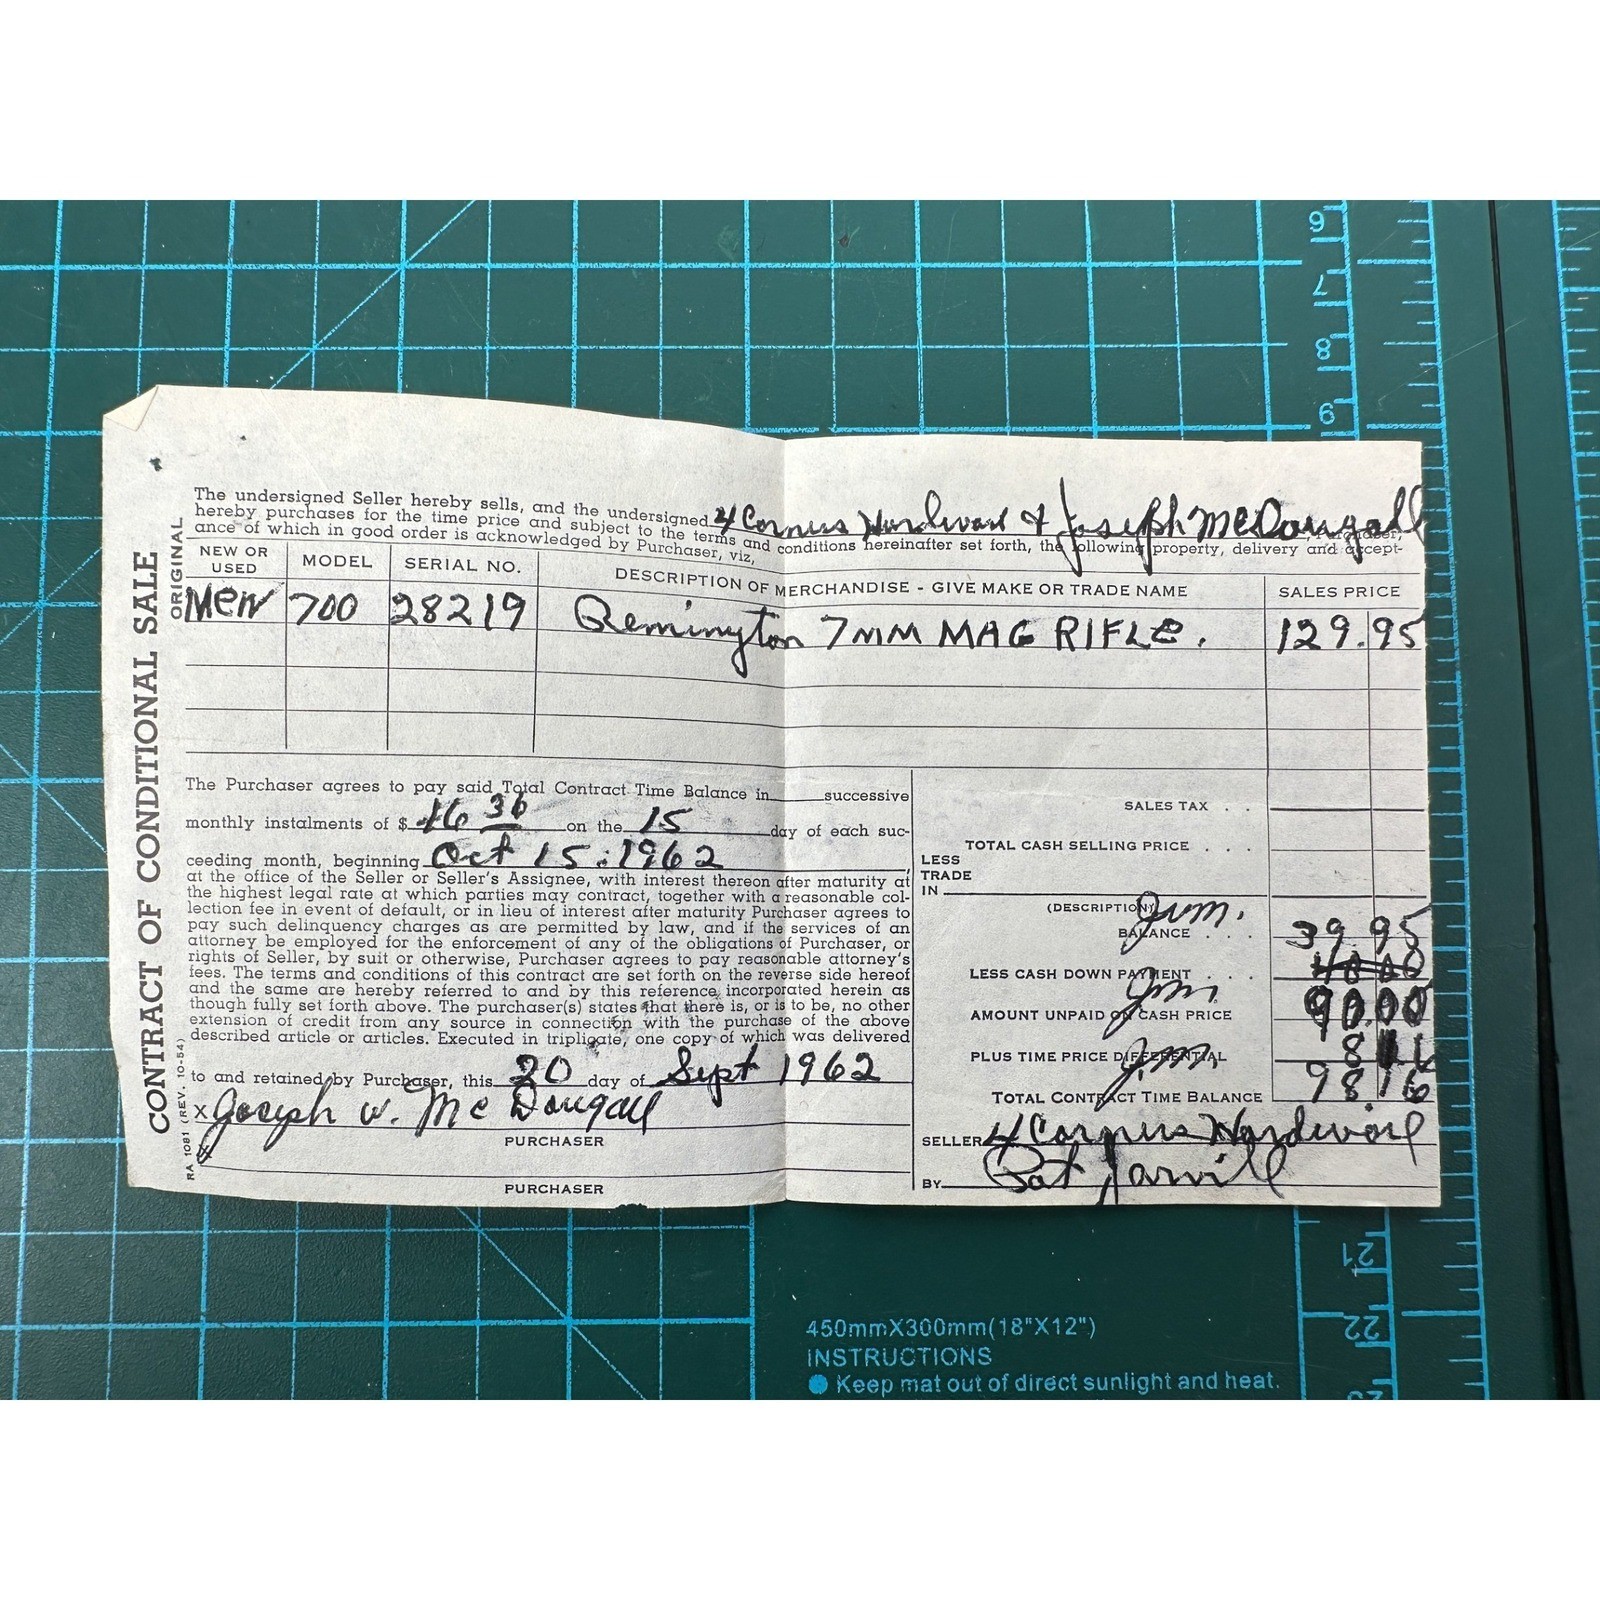 CONTRACT OF CONDITIONAL SALE
ORIGINAL
RA 1081 (REV. 10-54)
The undersigned Seller hereby sells, and the undersigned 4 Corners Hardware & Joseph McDougall
hereby purchases for the time price and subject to the terms and conditions hereinafter set forth, the following property, delivery and accept-
ance of which in good order is acknowledged by Purchaser, viz,
NEW OR USED MODEL SERIAL NO. DESCRIPTION OF MERCHANDISE - GIVE MAKE OR TRADE NAME SALES PRICE
New 700 28219 Remington 7MM MAG RIFLE. 129.95
The Purchaser agrees to pay said Total Contract Time Balance in successive
monthly instalments of $ 16 36 on the 15 day of each suc-
ceeding month, beginning Oct 15. 1962,
at the office of the Seller or Seller's Assignee, with interest thereon after maturity at
the highest legal rate at which parties may contract, together with a reasonable col-
lection fee in event of default, or in lieu of interest after maturity Purchaser agrees to
pay such delinquency charges as are permitted by law, and if the services of an
attorney be employed for the enforcement of any of the obligations of Purchaser, or
rights of Seller, by suit or otherwise, Purchaser agrees to pay reasonable attorney's
fees. The terms and conditions of this contract are set forth on the reverse side hereof
and the same are hereby referred to and by this reference incorporated herein as
though fully set forth above. The purchaser(s) states that there is, or is to be, no other
extension of credit from any source in connection with the purchase of the above
described article or articles. Executed in triplicate, one copy of which was delivered
to and retained by Purchaser, this 20 day of Sept 1962
X Joseph W. McDougall
PURCHASER
X
PURCHASER
SALES TAX . .
TOTAL CASH SELLING PRICE . . .
LESS
TRADE
IN
(DESCRIPTION)
BALANCE . . . 39.95
LESS CASH DOWN PAYMENT . . .
AMOUNT UNPAID ON CASH PRICE 90.00
PLUS TIME PRICE DIFFERENTIAL
J.M.
TOTAL CONTRACT TIME BALANCE 98.16
SELLER 4 Corners Hardware
BY Pat Jarvill
6
7
8
9
21
22
450mmX300mm(18"X12")
INSTRUCTIONS
● Keep mat out of direct sunlight and heat.